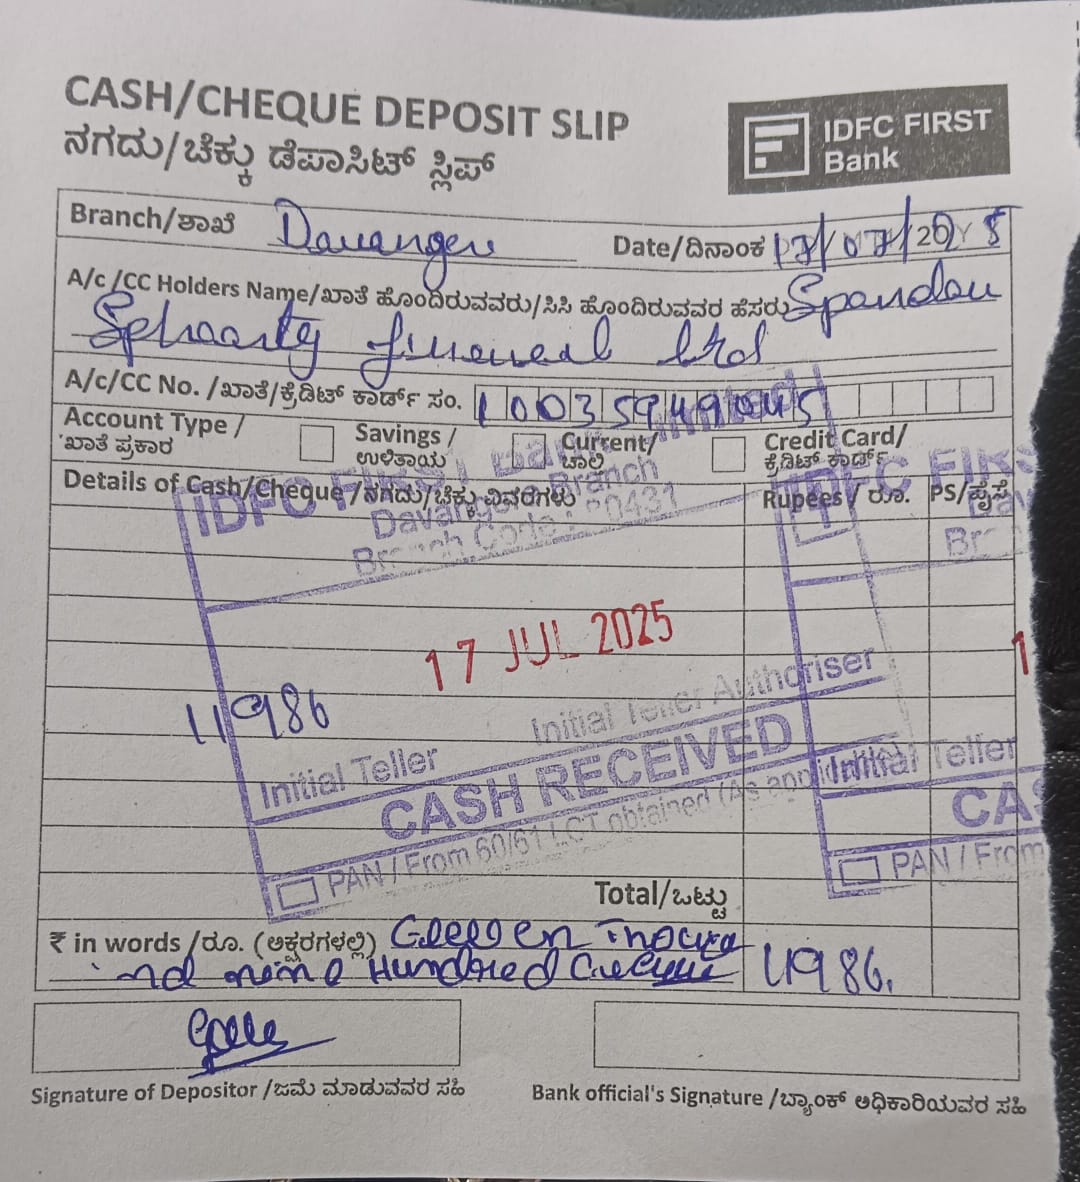 CASH/CHEQUE DEPOSIT SLIP
ನಗದು/ಚೆಕ್ಕು ಡೆಪಾಸಿಟ್ ಸ್ಲಿಪ್
IDFC FIRST
Bank
Branch/ಶಾಖೆ Davangere
Date/ದಿನಾಂಕ 17/07/2025
A/c /CC Holders Name/ಖಾತೆ ಹೊಂದಿರುವವರು/ಸಿಸಿ ಹೊಂದಿರುವವರ ಹೆಸರು Spandan
Sphoorty financial ltd
A/c/CC No. /ಖಾತೆ/ಕ್ರೆಡಿಟ್ ಕಾರ್ಡ್ ಸಂ.
Account Type /
ಖಾತೆ ಪ್ರಕಾರ
Savings /
ಉಳಿತಾಯ
Current/
ಚಾಲ್ತಿ
Credit Card/
ಕ್ರೆಡಿಟ್ ಕಾರ್ಡ್
Details of Cash/Cheque /ನಗದು/ಚೆಕ್ಕು ವಿವರಗಳು
Rupees / ರೂ.
PS/ಪೈಸೆ
IDFC FIRST
Branch
Branch Code : 80431
17 JUL 2025
11986
Initial Teller Authoriser
Initial Teller
CASH RECEIVED
PAN / From 60/61 obtained (As
Initial Teller
PAN / From
Total/ಒಟ್ಟು
₹ in words /ರೂ. (ಅಕ್ಷರಗಳಲ್ಲಿ)
nine Hundred
11986.
Signature of Depositor /ಜಮೆ ಮಾಡುವವರ ಸಹಿ
Bank official's Signature /ಬ್ಯಾಂಕ್ ಅಧಿಕಾರಿಯವರ ಸಹಿ